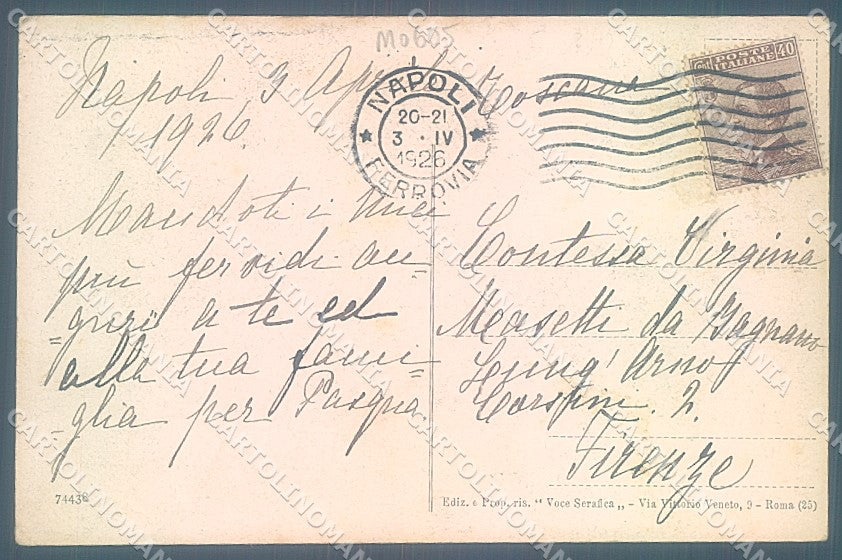 M0605
Napoli 3 Aprile
1926.
Mandoti i miei
più fervidi au=
=gurii a te ed
alla tua fami=
=glia per Pasqua
74438
NAPOLI
20-21
3 · IV
1926
FERROVIA
POSTE
ITALIANE
40
Toscana
Contessa Virginia
Masetti da Bagnano
Lung' Arno
Corsini. 2.
Firenze
Ediz. e Propr. ris. “ Voce Serafica „ - Via Vittorio Veneto, 9 - Roma (25)
CARTOLINOMANIA